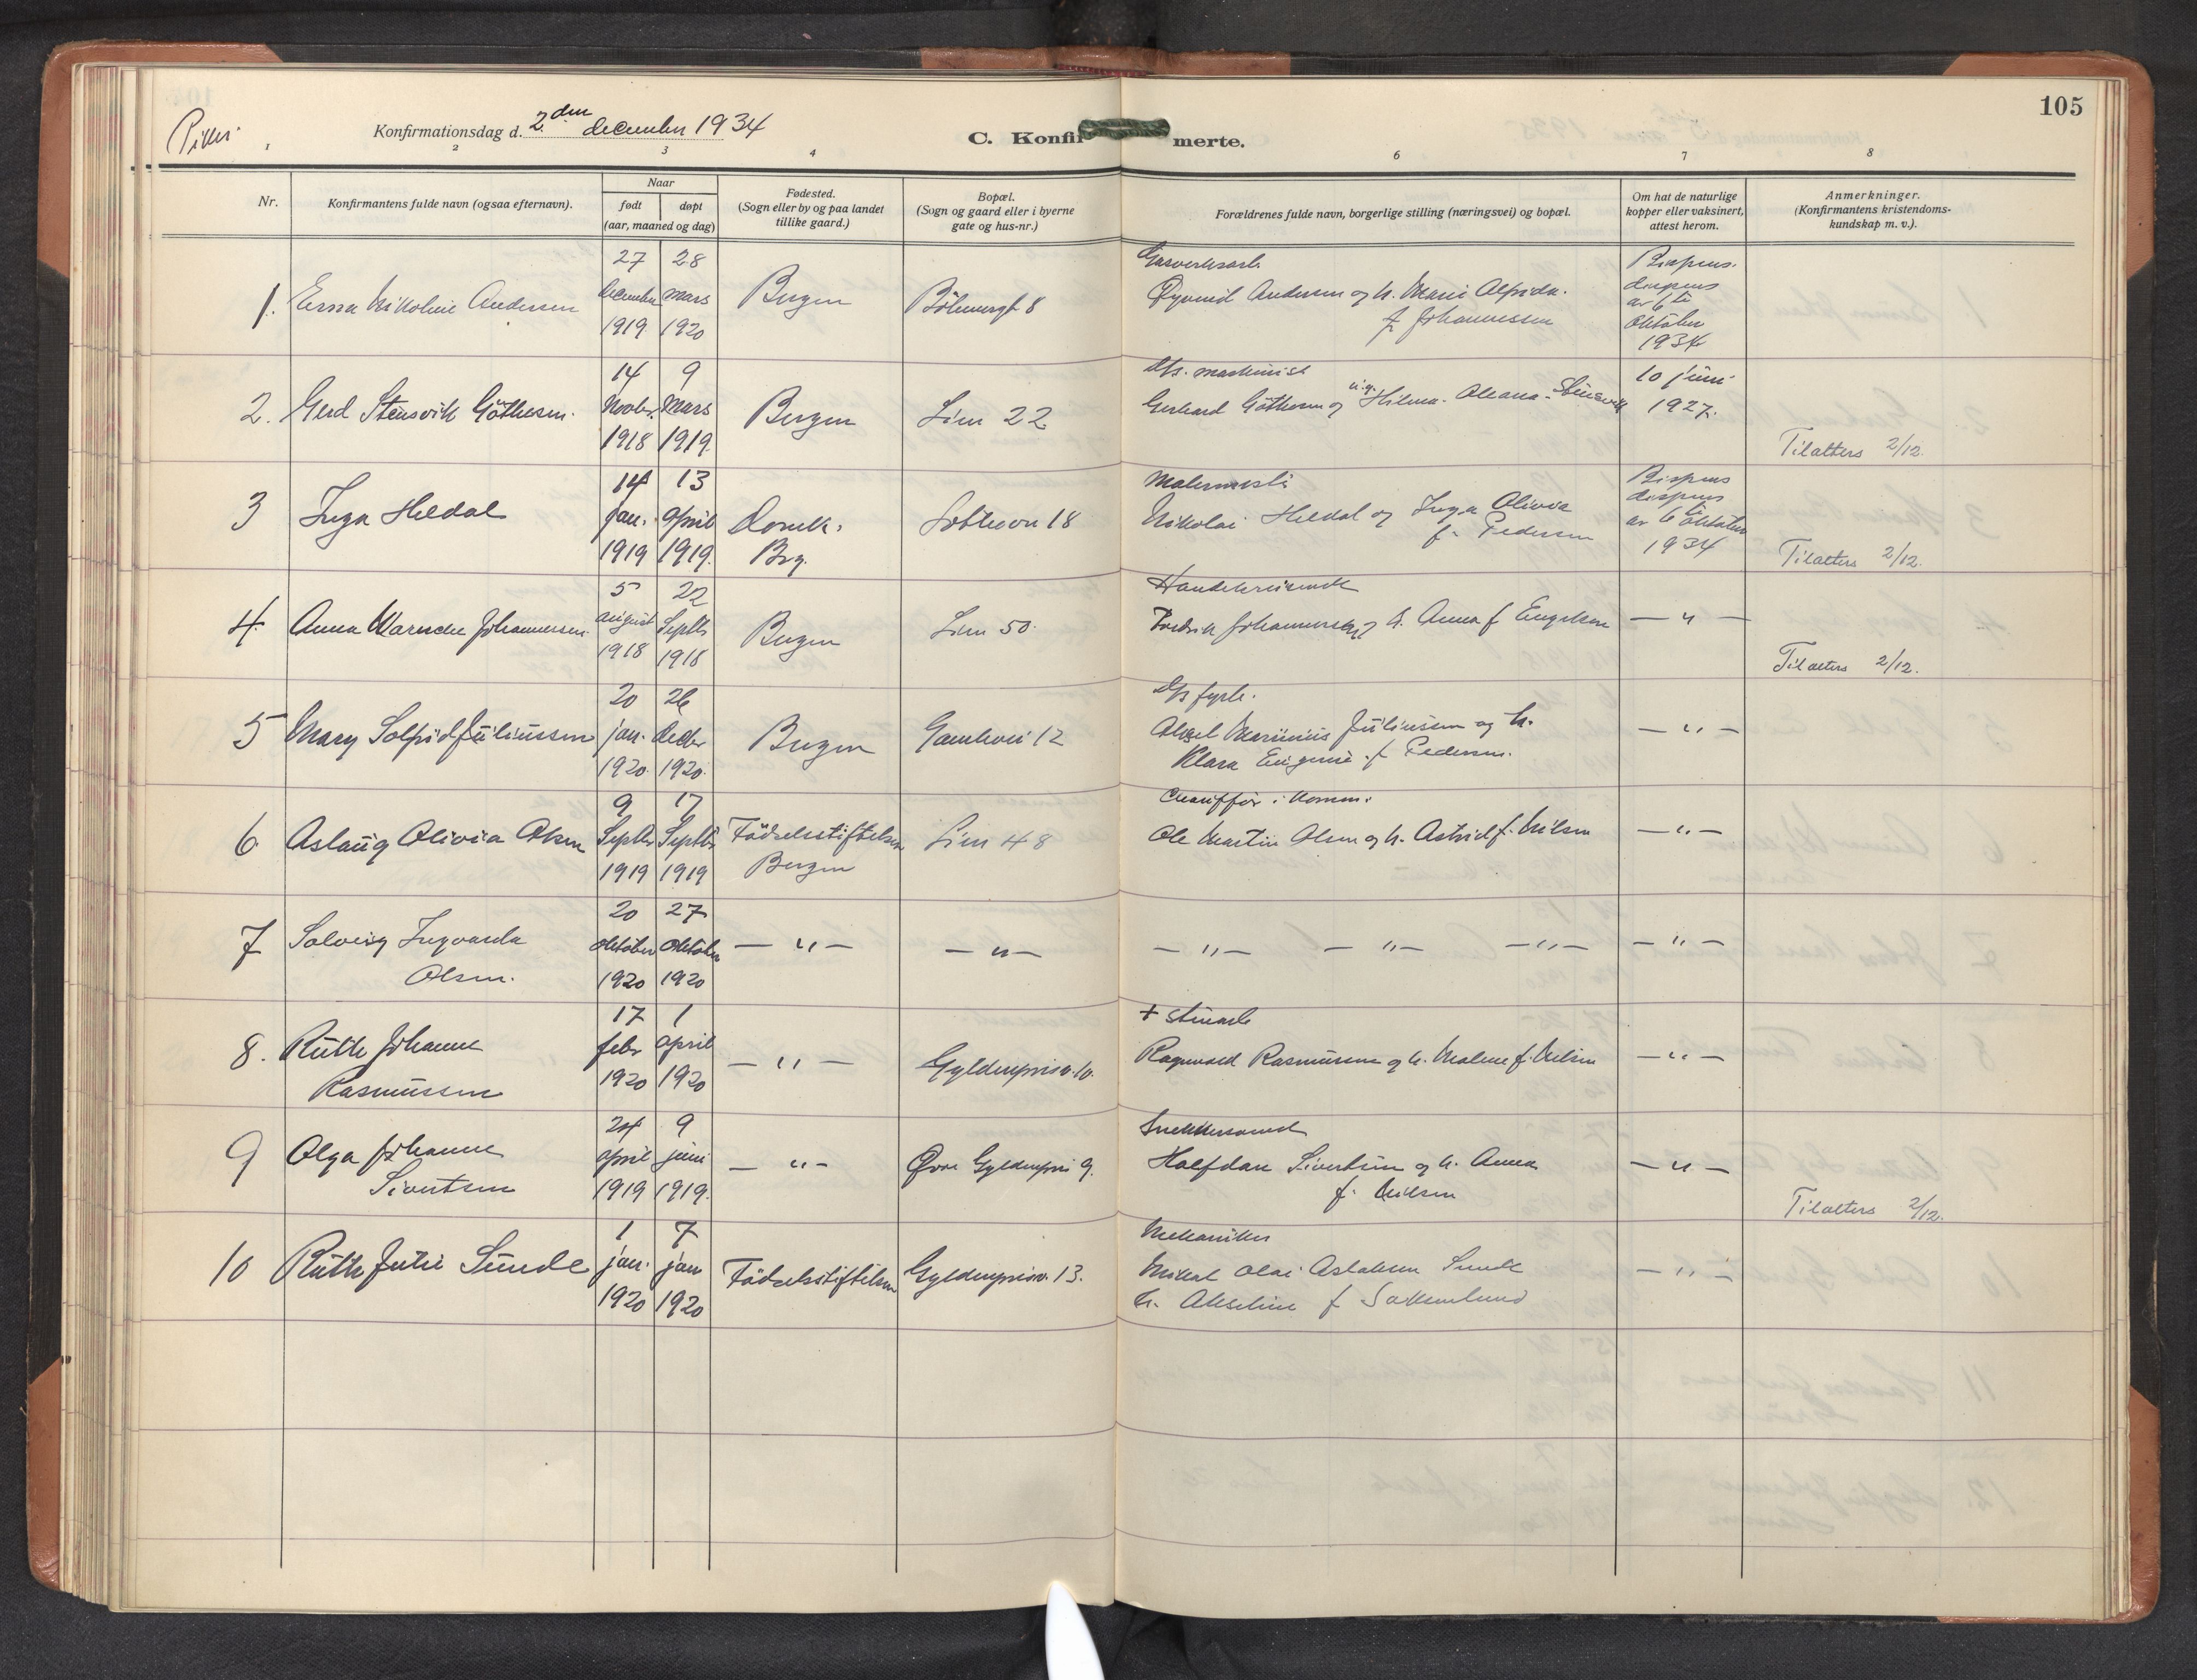 105
Piker.
Konfirmationsdag d. 2den december 1934
C. Konfirmerte.
1 2 3 4 6 7 8
Nr.
Konfirmantens fulde navn (ogsaa efternavn).
Naar
født døpt
(aar, maaned og dag)
Fødested.
(Sogn eller by og paa landet
tillike gaard.)
Bopæl.
(Sogn og gaard eller i byerne
gate og hus-nr.)
Forældrenes fulde navn, borgerlige stilling (næringsvei) og bopæl.
Om hat de naturlige
kopper eller vaksinert,
attest herom.
Anmerkninger.
(Konfirmantens kristendoms-
kundskap m. v.).
1. Erna Nikoline Andersen
27 december 1919
28 mars 1920
Bergen
8
Gasverksarb.
Øyvind Andersen og h. Marie Alfrida.
f Johannessen
Bispens.
dispens
av 6te
Oktober
1934
2. Gerd Stensvik Göthesen.
14 Novbr. 1918
9 Mars 1919.
Bergen
Lien 22
Dps. maskinist
Gerhard Göthesen og u.g. Hilma Oleana Stensvik
10 juni
1927.
Tilalters 2/12.
3 Inga Heldal
14 jan. 1919
13 April 1919.
Domk.
Brg.
18
Malermester
Nikolai Heldal og Inga Olivia
f. Pedersen
Bispens
dispens
av 6te oktober
1934
Tilalters 2/12.
4. Anna Warncke Johannessen
5 august 1918
22 Septbr 1918
Bergen
Lien 50.
Handelsreisende
Fredrik Johannessen og h. Anna f Engelsen
— " —
Tilalters 2/12.
5 Mary Solfrid Juliussen
20 jan. 1920.
26 decbr 1920.
Bergen
12
Dps fyrb.
Aksel Marinius Juliussen og h.
Klara Eugenie f Pedersen.
— " —
6. Aslaug Olivia Olsen
9 Septbr 1919
17 Septbr 1919
Födselsstiftelsen
Bergen
Lien 48
Chauffør i komm.
Ole Martin Olsen og h. Astrid f. Nilsen
— " —
7 Solveig Ingvarda
Olsen.
20 oktober 1920
27 Oktober 1920
— " —
— " —
— " — — " — — " —
— " —
8. Ruth Johanne
Rasmussen
17 febr 1920
1 april 1920
— " —
Gyldenprisv. 10.
+ stuearb
Ragnvald Rasmussen og h. Malene f. Nilsen
— " —
9 Olga Johanne
Sivertsen
24 april 1919
9 juni 1919.
— " —
Øvre Gyldenpris 9.
Snekkersvend
Halfdan Sivertsen og h. Anna
f. Nilsen
— " —
Tilalters 2/12.
10 Ruth Julie Sunde
1 jan. 1920
7 jan 1920
Födselsstiftelsen
Gyldenprisv. 13.
Mekaniker
Mikal Olai Aslaksen Sunde
h. Akseline f
— " —